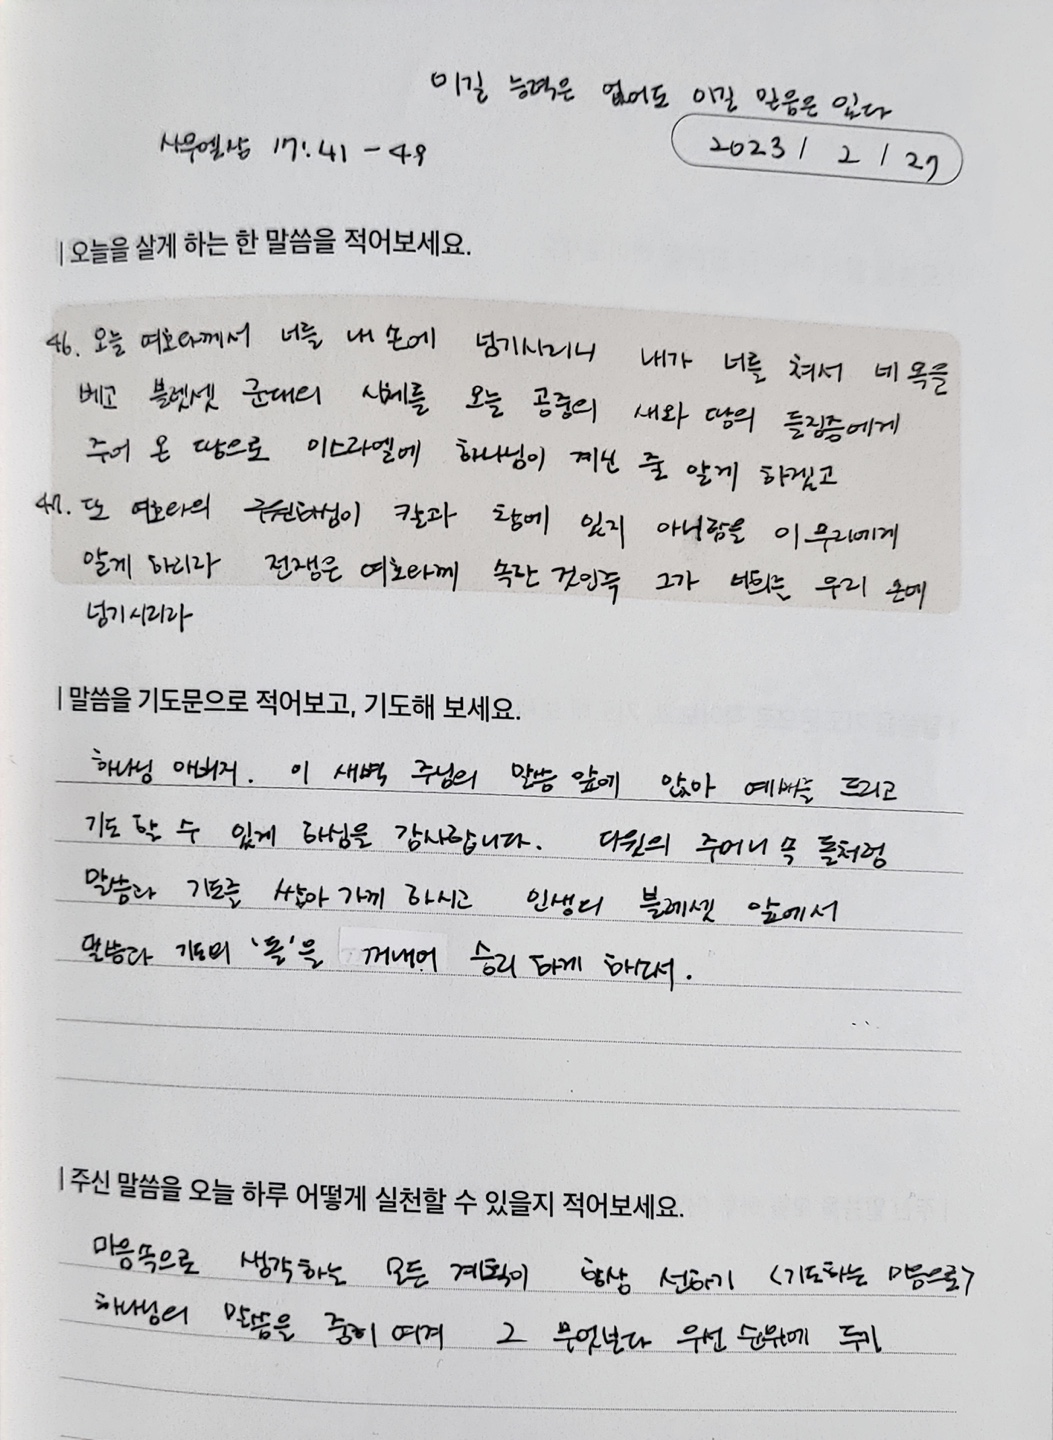 이길 능력은 없어도 이길 믿음은 있다
사무엘상 17:41-49
2023 / 2 / 27
오늘을 살게 하는 한 말씀을 적어보세요.
46. 오늘 여호와께서 너를 내 손에 넘기시리니 내가 너를 쳐서 네 목을
베고 블레셋 군대의 시체를 오늘 공중의 새와 땅의 들짐승에게
주어 온 땅으로 이스라엘에 하나님이 계신 줄 알게 하겠고
47. 또 여호와의 구원하심이 칼과 창에 있지 아니함을 이 무리에게
알게 하리라 전쟁은 여호와께 속한 것인즉 그가 너희는 우리 손에
넘기시리라
말씀을 기도문으로 적어보고, 기도해 보세요.
하나님 아버지. 이 새벽 주님의 말씀 앞에 앉아 예배를 드리고
기도 할 수 있게 하심을 감사합니다. 다윗의 주머니 속 돌처럼
말씀과 기도를 쌓아 가게 하시고 인생의 블레셋 앞에서
말씀과 기도의 '돌'을 꺼내어 승리 하게 하소서.
주신 말씀을 오늘 하루 어떻게 실천할 수 있을지 적어보세요.
마음속으로 생각하는 모든 계획이 항상 선하기 <기도하는 마음으로>
하나님의 말씀을 중히 여겨 그 무엇보다 우선 순위에 두기